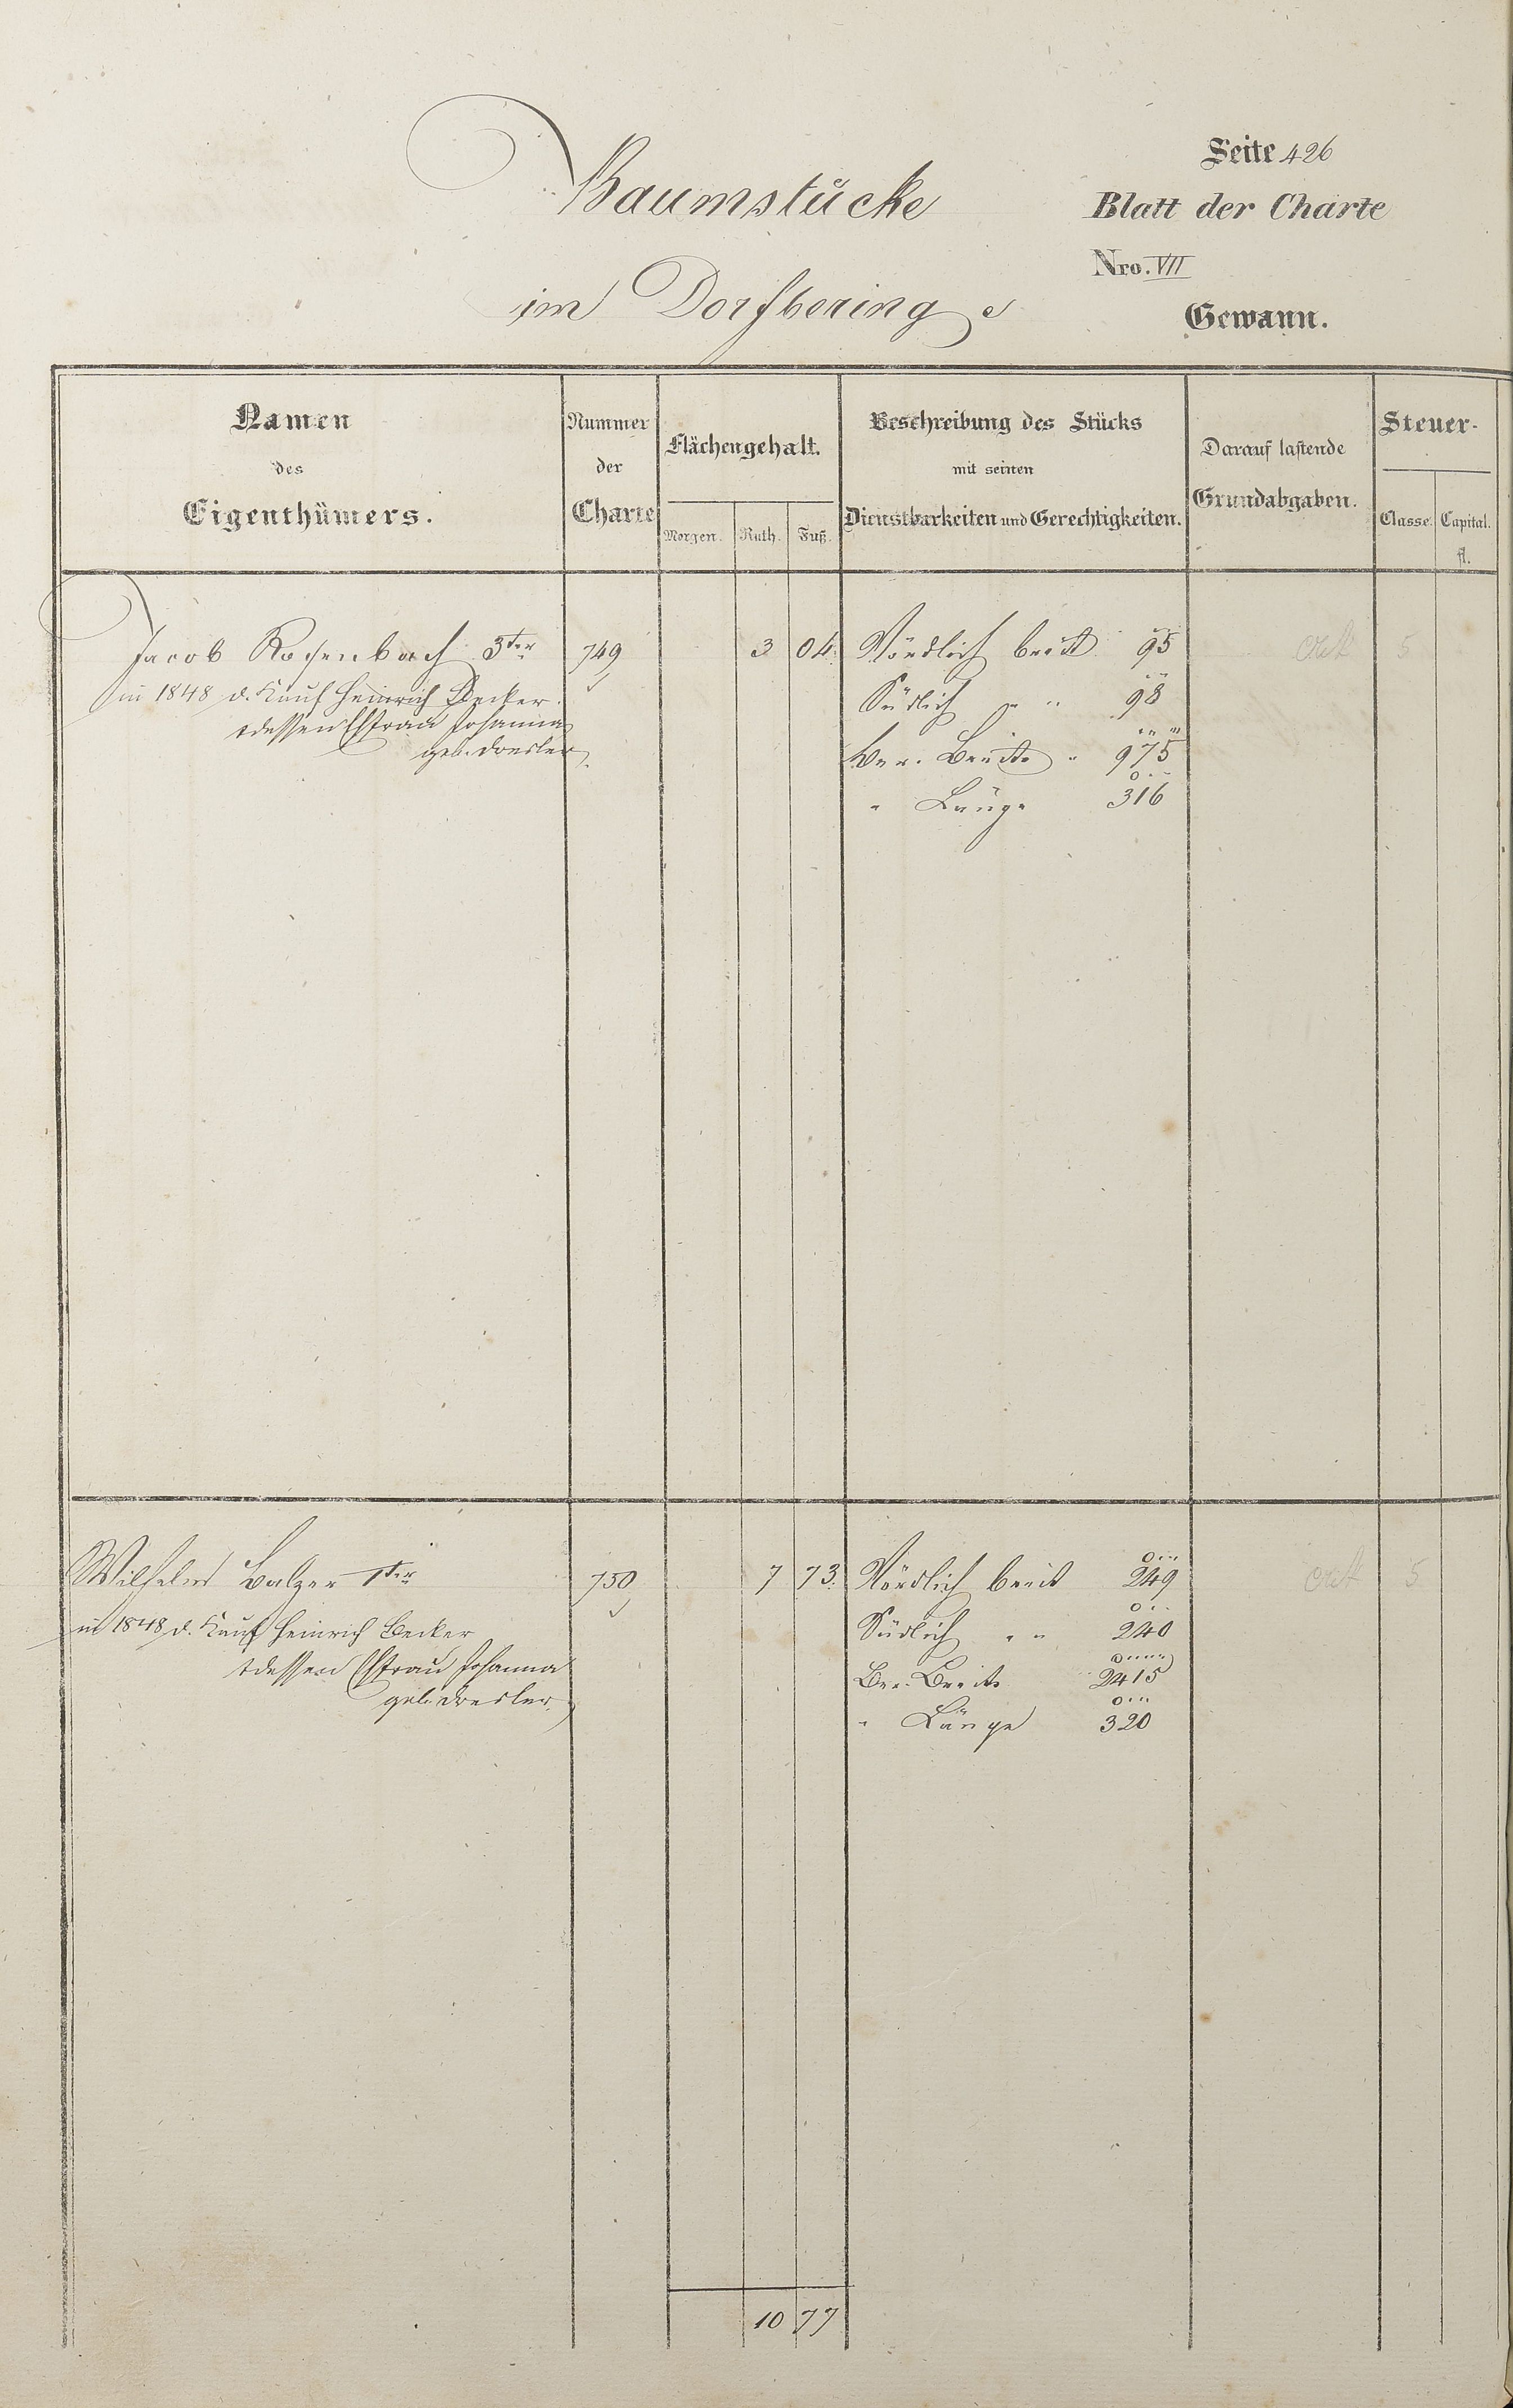 Seite 426
Baumstücke
Blatt der Charte
Nro. VII
im Dorfberinge
Gewann.
Namen des Eigenthümers.
Nummer der Charte
Flächengehalt.
Morgen. Ruth. Fuß.
Beschreibung des Stücks mit seinen Dienstbarkeiten und Gerechtigkeiten.
Darauf lastende Grundabgaben.
Steuer-
Classe. Capital.
fl.
Jacob Rosenbach 3ter 749 3 04 Nördlich breit 95 5
in 1848 d. Kauf Heinrich Becker Südlich " " 98
& dessen Ehfrau Johanna
geb. Dresler Ber. Breite " 975
" Länge 316
Wilhelm Balzer 1ter 750 7 73 Nördlich breit 249 5
in 1848 d. Kauf Heinrich Becker Südlich " " 240
& dessen Ehfrau Johanna Ber. Breite 2415
geb. Dresler " Länge 320
10 77